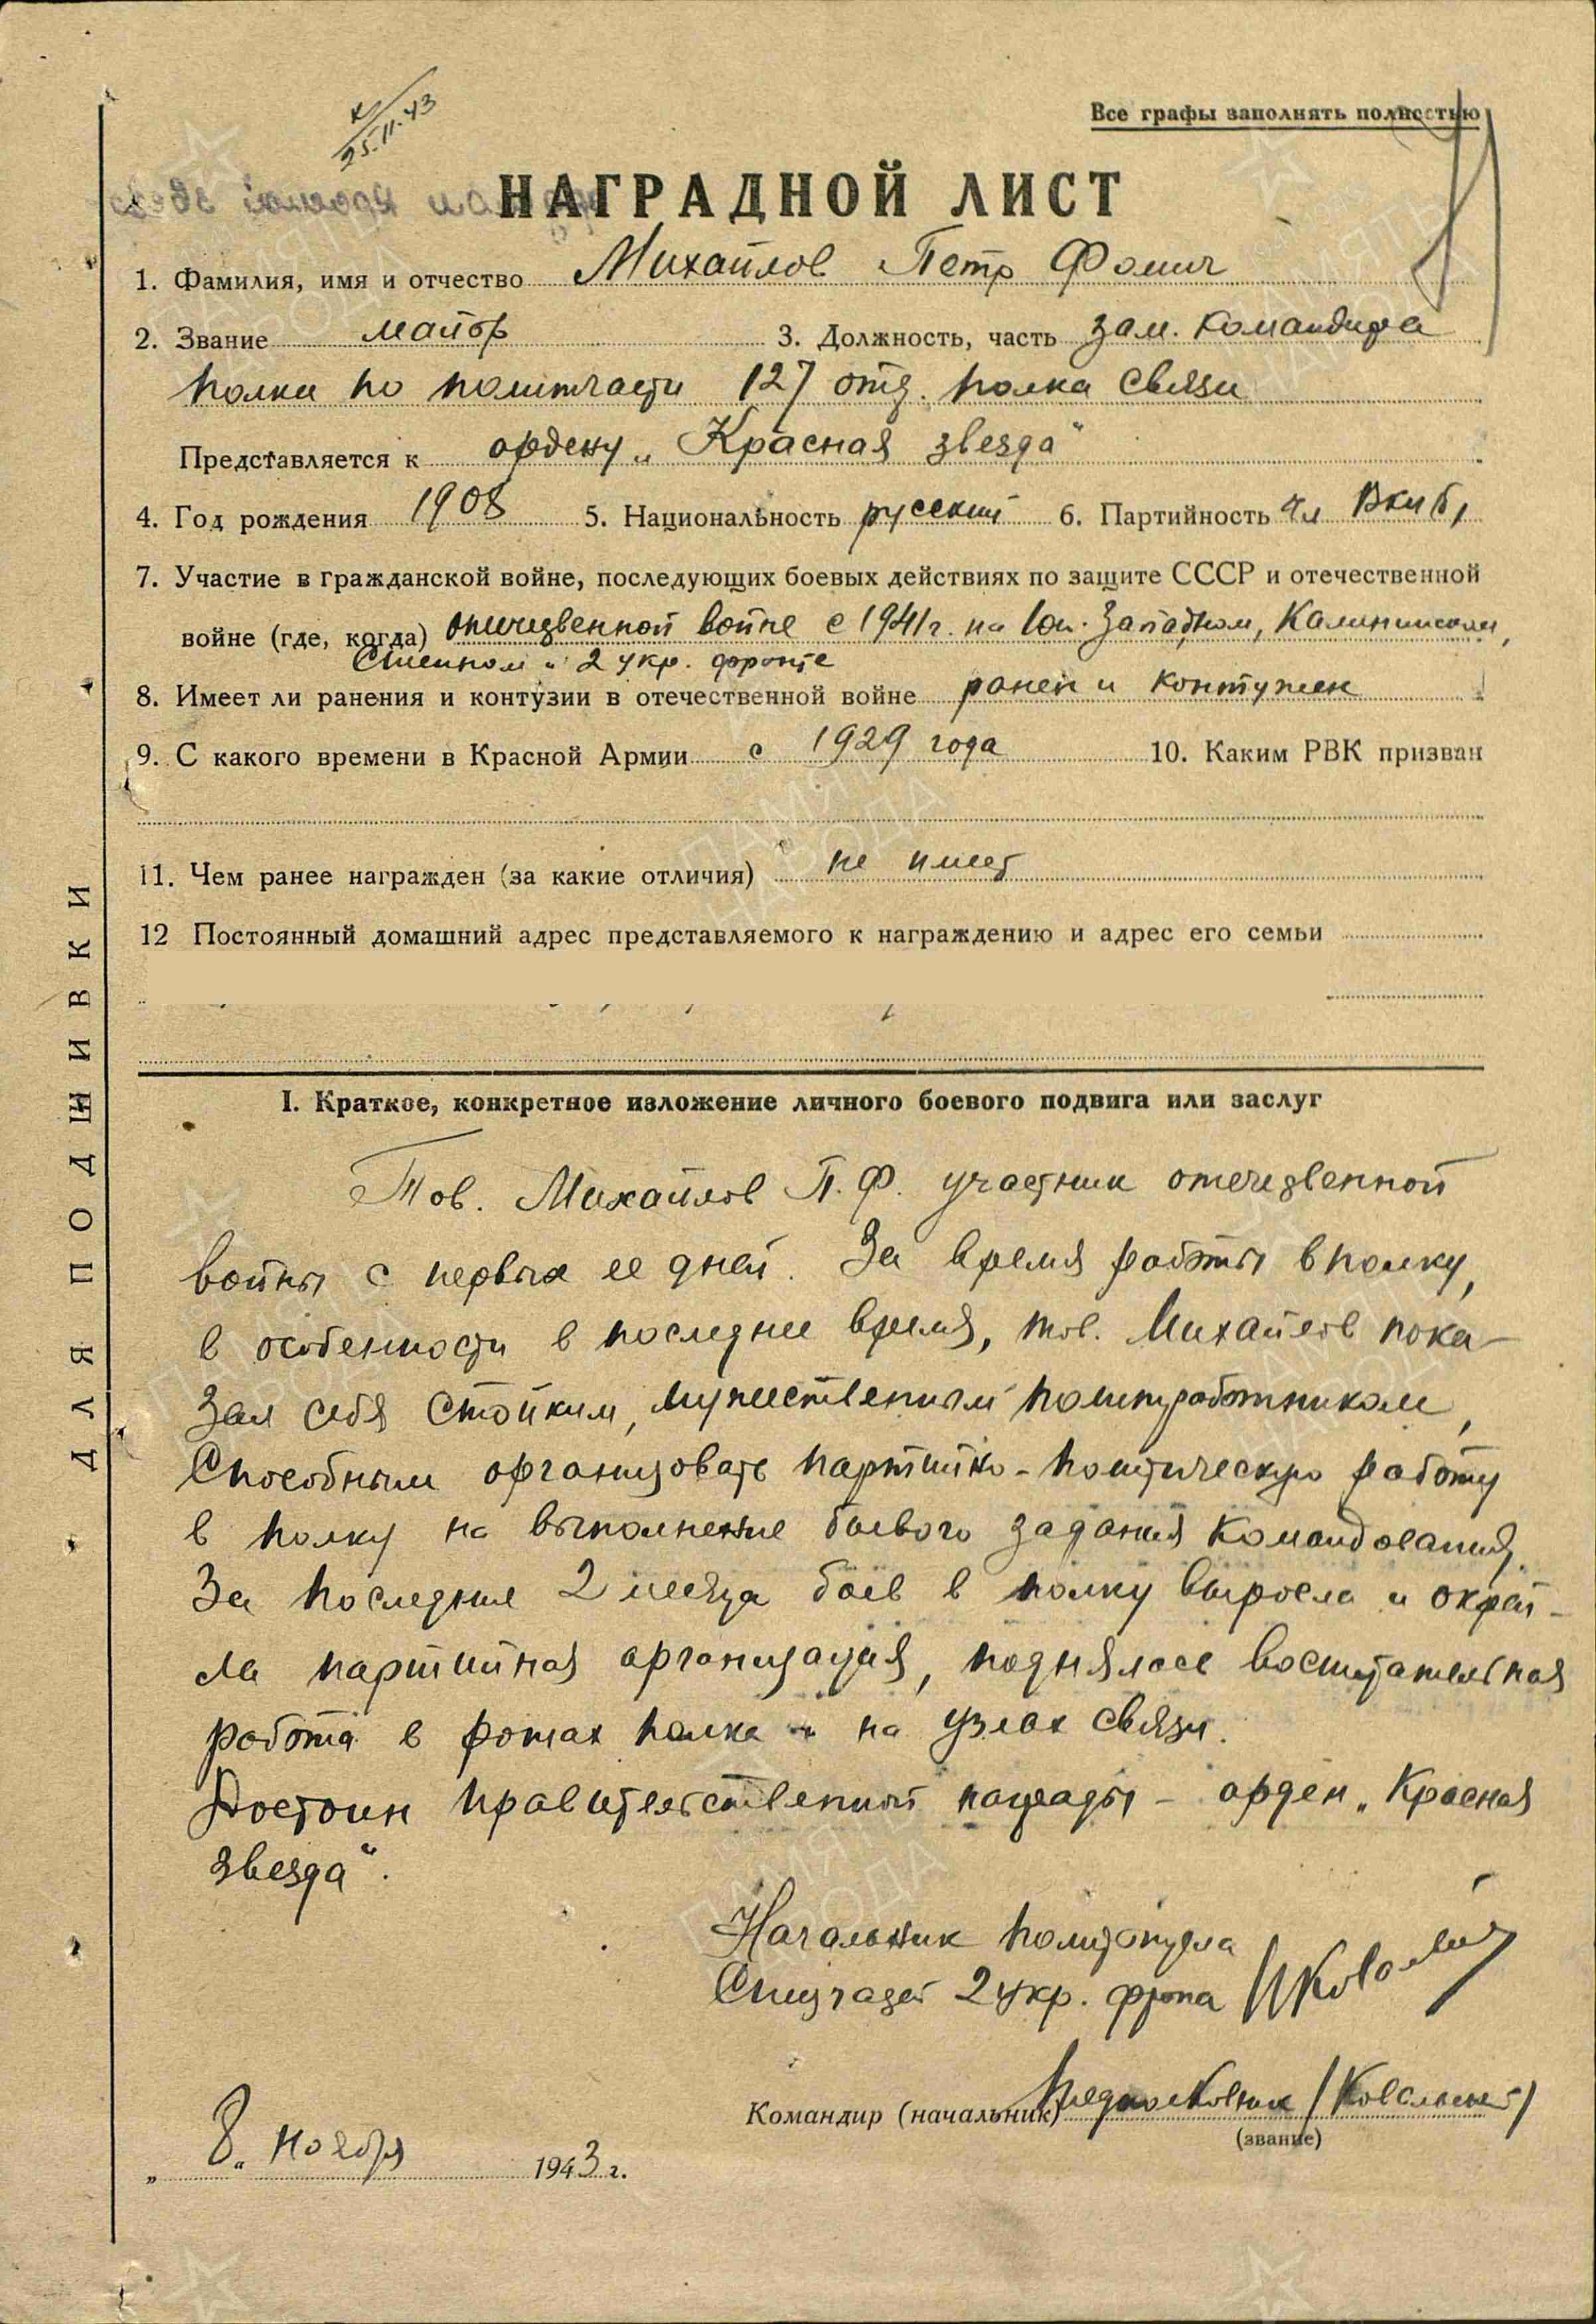 25.11.43
Все графы заполнять полностью
НАГРАДНОЙ ЛИСТ
1. Фамилия, имя и отчество Михайлов Петр Фомич
2. Звание майор 3. Должность, часть зам. командира
полка по политчасти 127 отд. полка связи
Представляется к ордену „Красная звезда"
4. Год рождения 1908 5. Национальность русский 6. Партийность чл ВКП(б)
7. Участие в гражданской войне, последующих боевых действиях по защите СССР и отечественной
войне (где, когда) отечественной войне с 1941 г. на Юг. Западном, Калининском,
Степном и 2 укр. фронте
8. Имеет ли ранения и контузии в отечественной войне ранен и контужен
9. С какого времени в Красной Армии с 1929 года 10. Каким РВК призван
11. Чем ранее награжден (за какие отличия) не имеет
12 Постоянный домашний адрес представляемого к награждению и адрес его семьи
I. Краткое, конкретное изложение личного боевого подвига или заслуг
Тов. Михайлов П. Ф. участник отечественной
войны с первых ее дней. За время работы в полку,
в особенности в последнее время, тов. Михайлов пока-
зал себя стойким, мужественным политработником,
способным организовать партийно-политическую работу
в полку на выполнение боевого задания командования.
За последние 2 месяца боев в полку выросла и окреп-
ла партийная организация, поднялась воспитательная
работа в ротах полка и на узлах связи.
Достоин правительственной награды – орден „Красная
звезда".
Начальник политотдела
Спецчастей 2 укр. фронта
Командир (начальник) Подполковник /Ковальский/
(звание)
„8" ноября 1943 г.
ДЛЯ ПОДШИВКИ
ПАМЯТЬ
НАРОДА